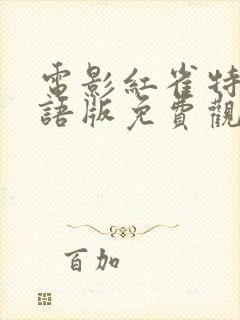 電影紅雀特
語版免費觀
百加